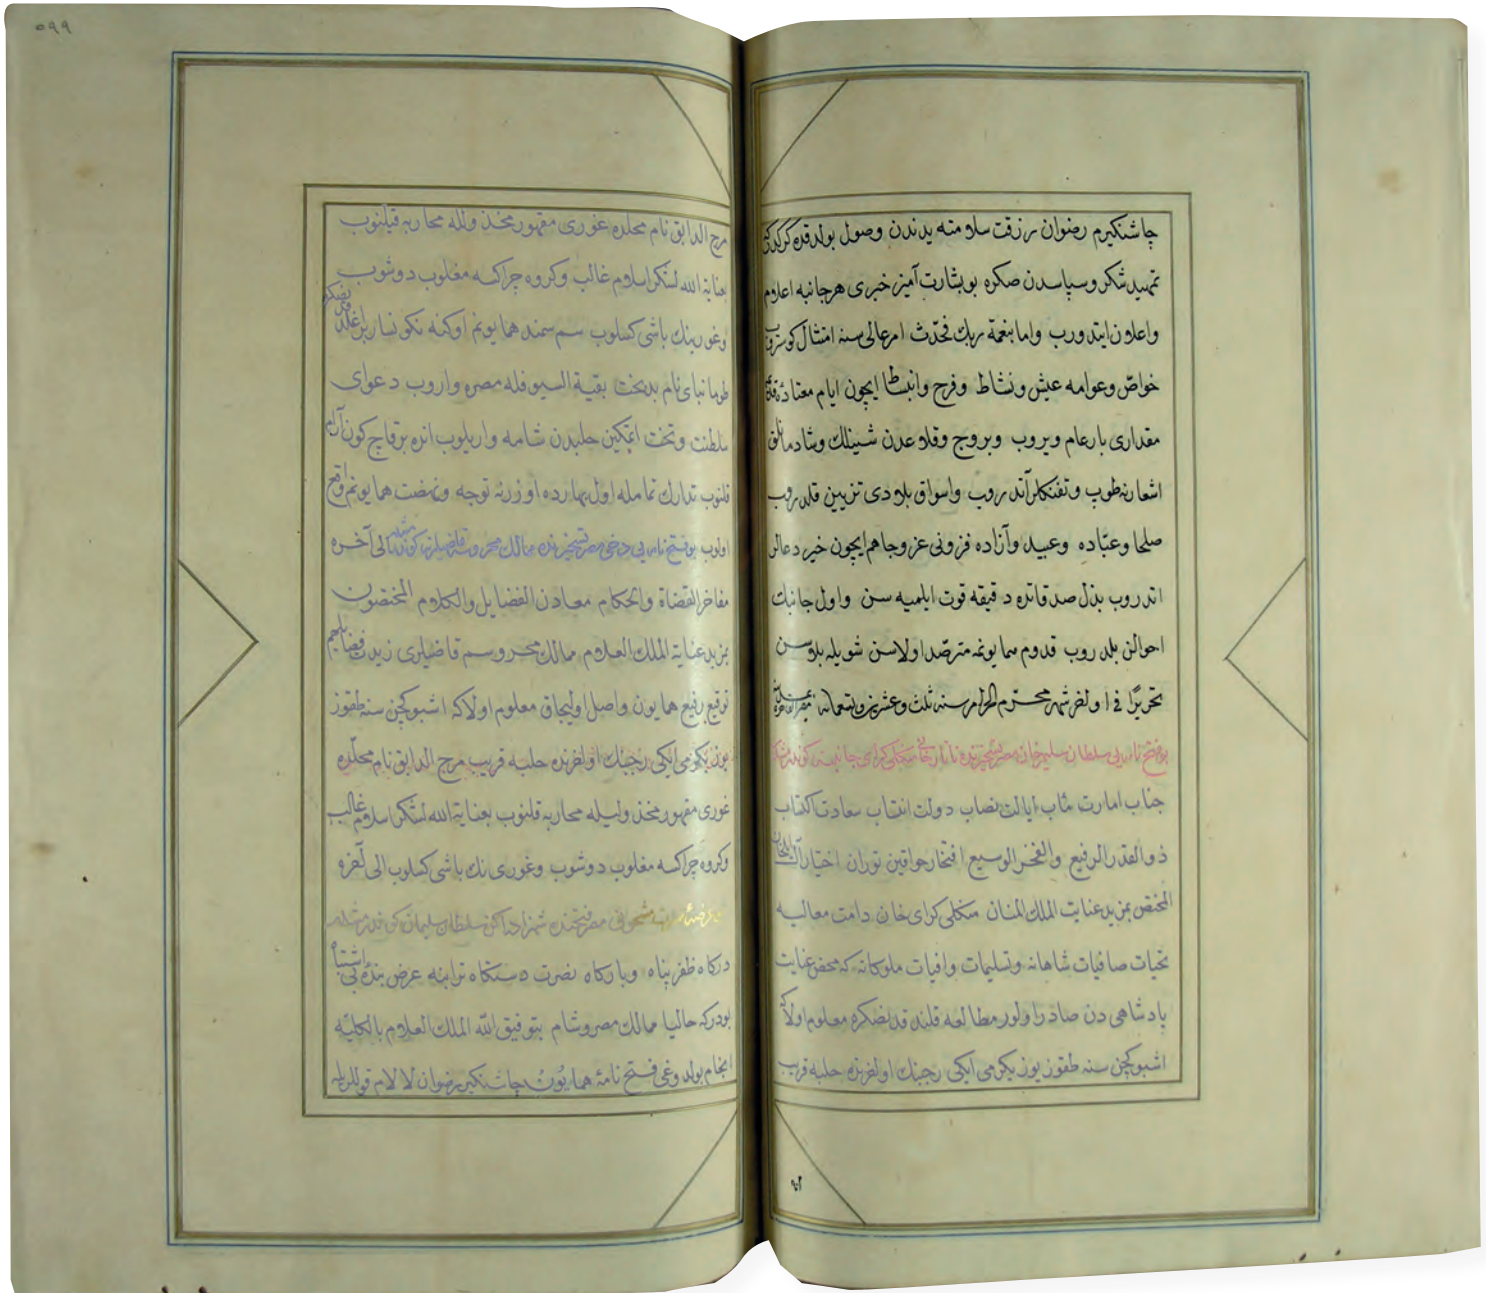 چاشنكيرم رضوان رزقت سلامته يدندن وصول بولدقده كركدركه
تمهيد شكر وسپاسدن صكره بوبشارت آميز خبرى هر جانبه اعلام
واعلان ايتدورب واما بنعمة ربك فحدّث امر عالى سنه امتثال كوستروب
خواصّ وعوامه عيش ونشاط وفرح وانبساط ايچون ايام معتاده
مقدارى بارعام ويروب وبروج وقلاعدن شينلك وشادمانلق
اشعارنه طوپ وتفنكلر آتدروب واسواق بلادى تزيين قلدروب
صلحا وعبّاده وعبيد وآزاده فزونى عز وجاهم ايچون خير دعالر
اتدروب بذل صدقاتده دقيقه فوت ايلميه سن واول جانبك
احوالن بلدروب قدوم همايونمه مترصّد اولاسن شويله بلاسن
تحريرًا فى اواخر شهر محرّم الحرام سنه ثلث وعشرين وتسعمائه
بو فتح نامه يى سلطان سليم خان مصر تسخيرنده تاتار خانى منكلى كراى جانبنه كوندرمشدر
جناب امارت مآب ايالت نصاب دولت انتساب سعادت اكتساب
ذو القدر الرفيع والفخر الوسيع افتخار خواقين توران اختيار
المختص بمزيد عنايت الملك المنان منكلى كراى خان دامت معاليه
تحيات صافيات شاهانه وتسليمات وافيات ملوكانه كه محض عنايت
پادشاهى دن صادر اولور مطالعه قلندقدنصكره معلوم اولاكه
اشبو كچن سنه طقوز يوز يكرمى ايكى رجبنك اواخرنده حلبه قريب
مرج الدابق نام محلده غورى مقهور مخذوللله محاربه قيلنوب
بعناية الله لشكر اسلام غالب وكروه چراكسه مغلوب دوشوب
وغورينك باشى كسلوب سم سمند همايونم اوكنه نكونسار
طومانباى نام بدبخت بقية السيوفله مصره واروب دعواى
سلطنت وتخت ايتمكين حلبدن شامه واريلوب انده برقاچ كون آرام
قلنوب تدارك تمامله اول بهارده اوزرنه توجه ونهضت همايونم واقع
اولوب بو فتح نامه يى دخى مصر تسخيرنده ممالك محروسه قاضيلرينه كوندرمشدر الى آخره
مفاخر القضاة والحكام معادن الفضايل والكلام المختصون
بمزيد عناية الملك العلام ممالك محروسم قاضيلرى زيدت فضايلهم
توقيع رفيع همايون واصل اوليجاق معلوم اولاكه اشبو كچن سنه طقوز
يوز يكرمى ايكى رجبنك اواخرنده حلبه قريب مرج الدابق نام محلده
غورى مقهور مخذوليله محاربه قلنوب بعناية الله لشكر اسلام غالب
وكروه چراكسه مغلوب دوشوب وغورى نك باشى كسلوب الى آخره
مصر فتحنده شهزاده سلطان سليمان كوندرمشدر
دركاه ظفر پناه وباركاه نصرت دستكاه ترابنه عرض بنده بى اشتباه
بودركه حاليا ممالك مصر وشام بتوفيق الله الملك العلام بالكليّه
انجام بولدوغى فتح نامۀ همايون چاشنكير رضوان لالام قوللريله